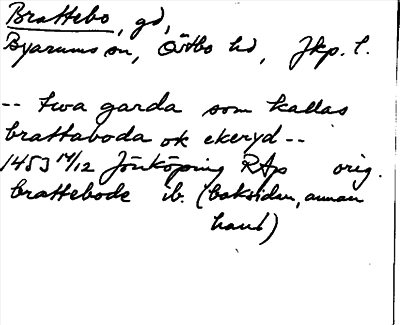 Brattebo, gd,
Byarums sn, Östbo hd, Jkp. l.
-- twa garda som kallas
brattaboda ok ekeryd --
1453 14/12 Jönköping RAp orig.
brattebode ib. (baksidan, annan
hand)